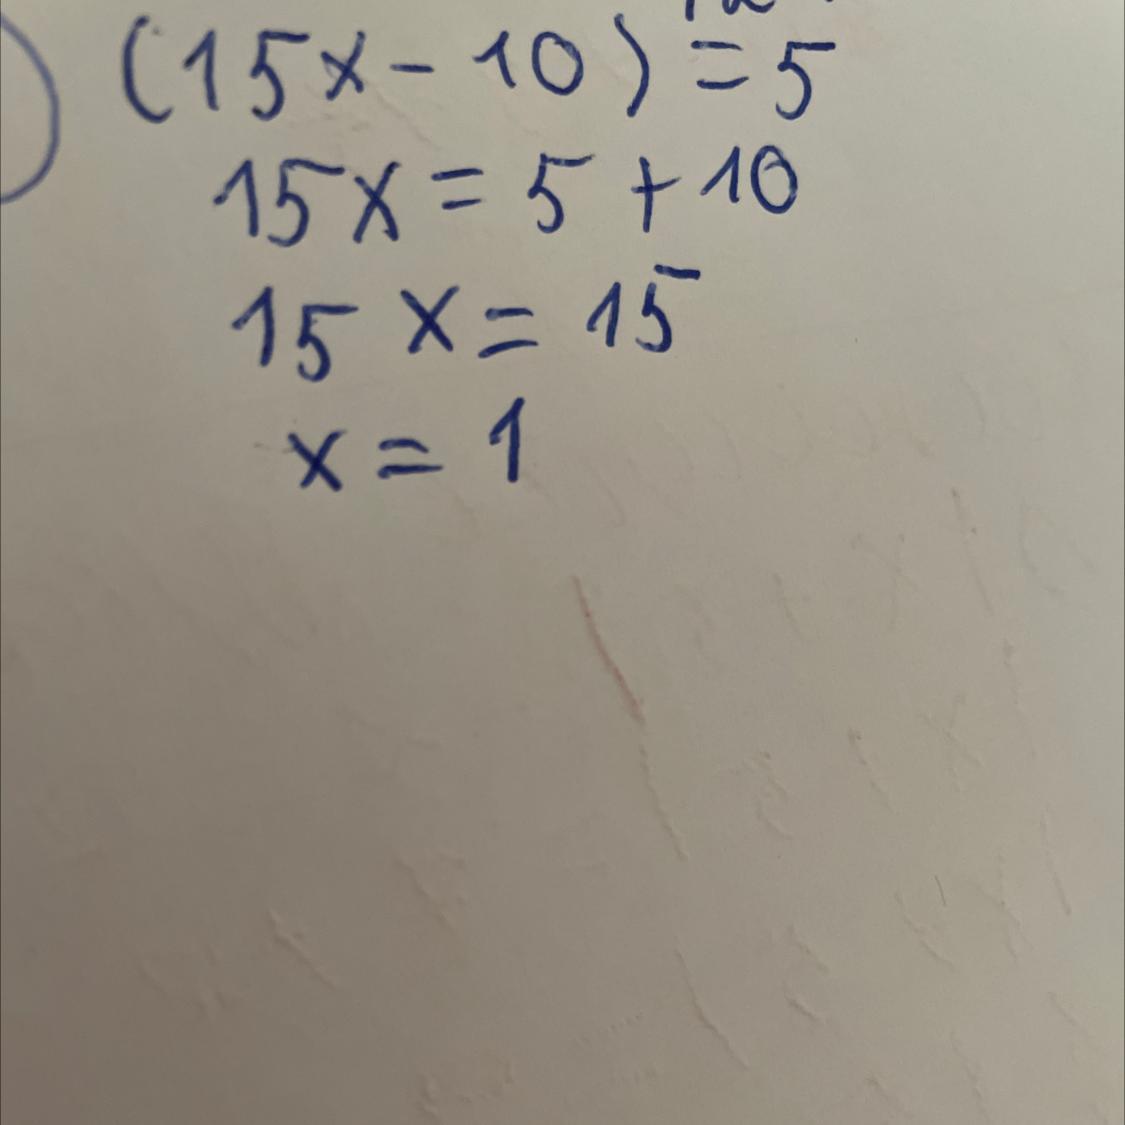 (15x - 10) = 5
15x = 5 + 10
15 x = 15
x = 1